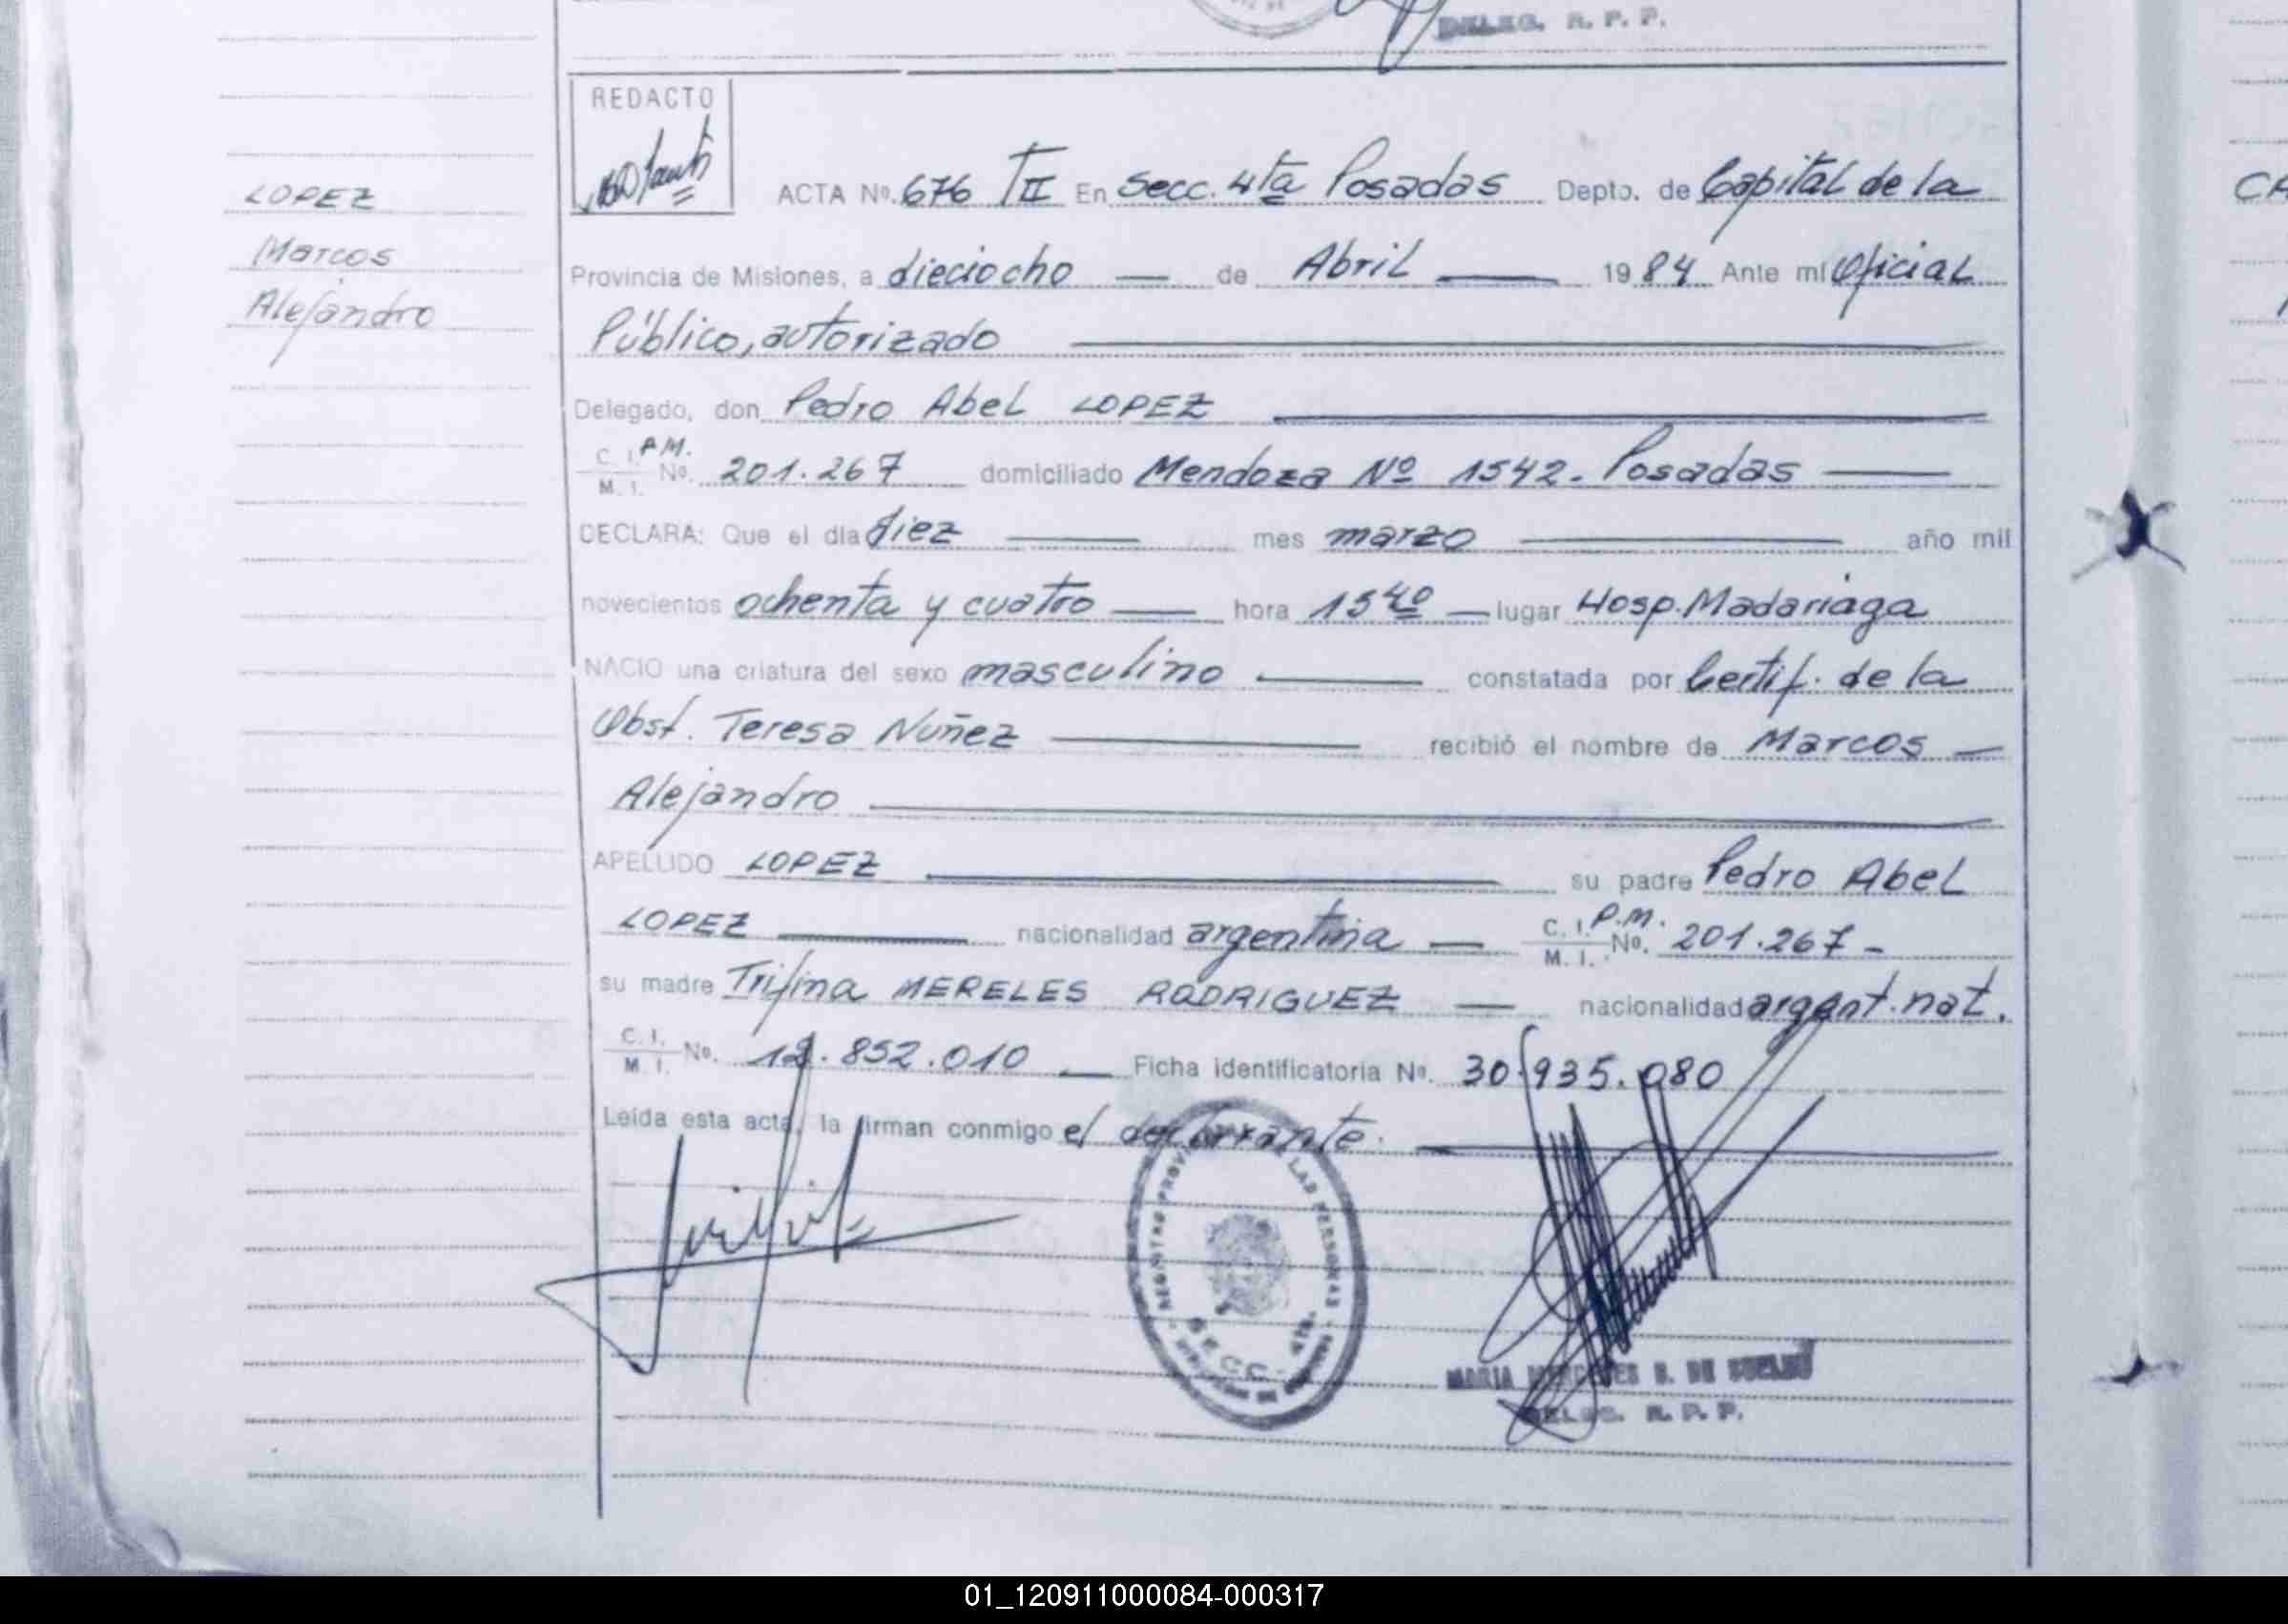 DELEG. R. P. P.
REDACTO
LOPEZ
Marcos
Alejandro
ACTA Nº. 676 TII En Secc. 4ta Posadas Depto. de Capital de la
Provincia de Misiones, a dieciocho — de Abril — 1984 Ante mí Oficial
Público, autorizado
Delegado, don Pedro Abel LOPEZ
C. I. P.M.
M. I. Nº. 201.267 domiciliado Mendoza Nº 1542. Posadas —
DECLARA: Que el día diez — mes marzo — año mil
novecientos ochenta y cuatro — hora 15 40 — lugar Hosp. Madariaga
NACIO una criatura del sexo masculino — constatada por Certif. de la
Obst. Teresa Nuñez — recibió el nombre de Marcos —
Alejandro
APELLIDO LOPEZ — su padre Pedro Abel
LOPEZ — nacionalidad argentina — C. I. P.M. M. I. Nº. 201.267 -
su madre Trifina MERELES RODRIGUEZ — nacionalidad argent. nat.
C. I.
M. I. Nº. .852.010 — Ficha identificatoria Nº. 30.935.080
Leída esta acta, la firman conmigo el declarante.
SECC. 4ta.
MARIA MERCEDES
DELEG. R. P. P.
CA
01_120911000084-000317